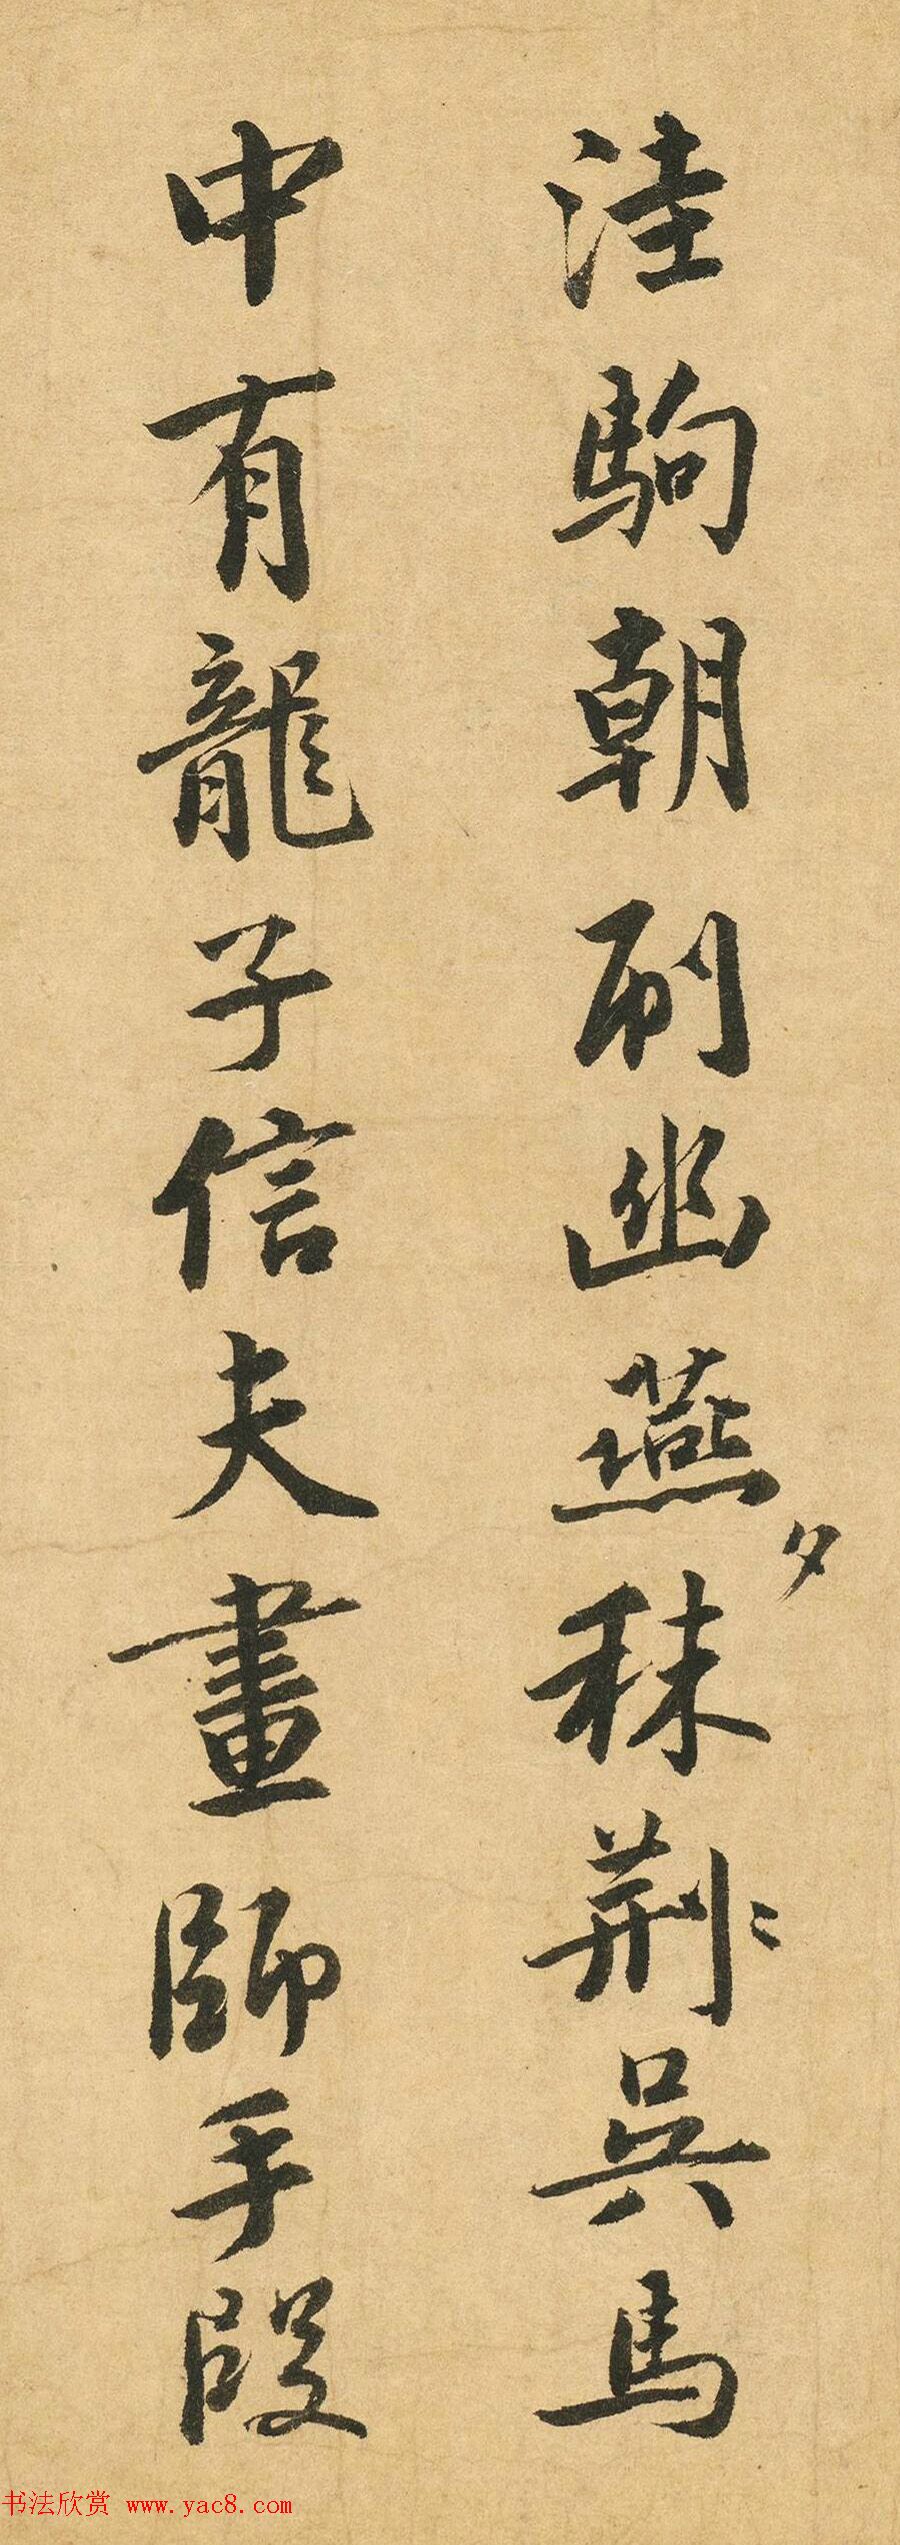 洼駒朝刷幽燕夕秣荆〻吳馬
中有龍子信夫畫師手段
书法欣赏 www.yac8.com